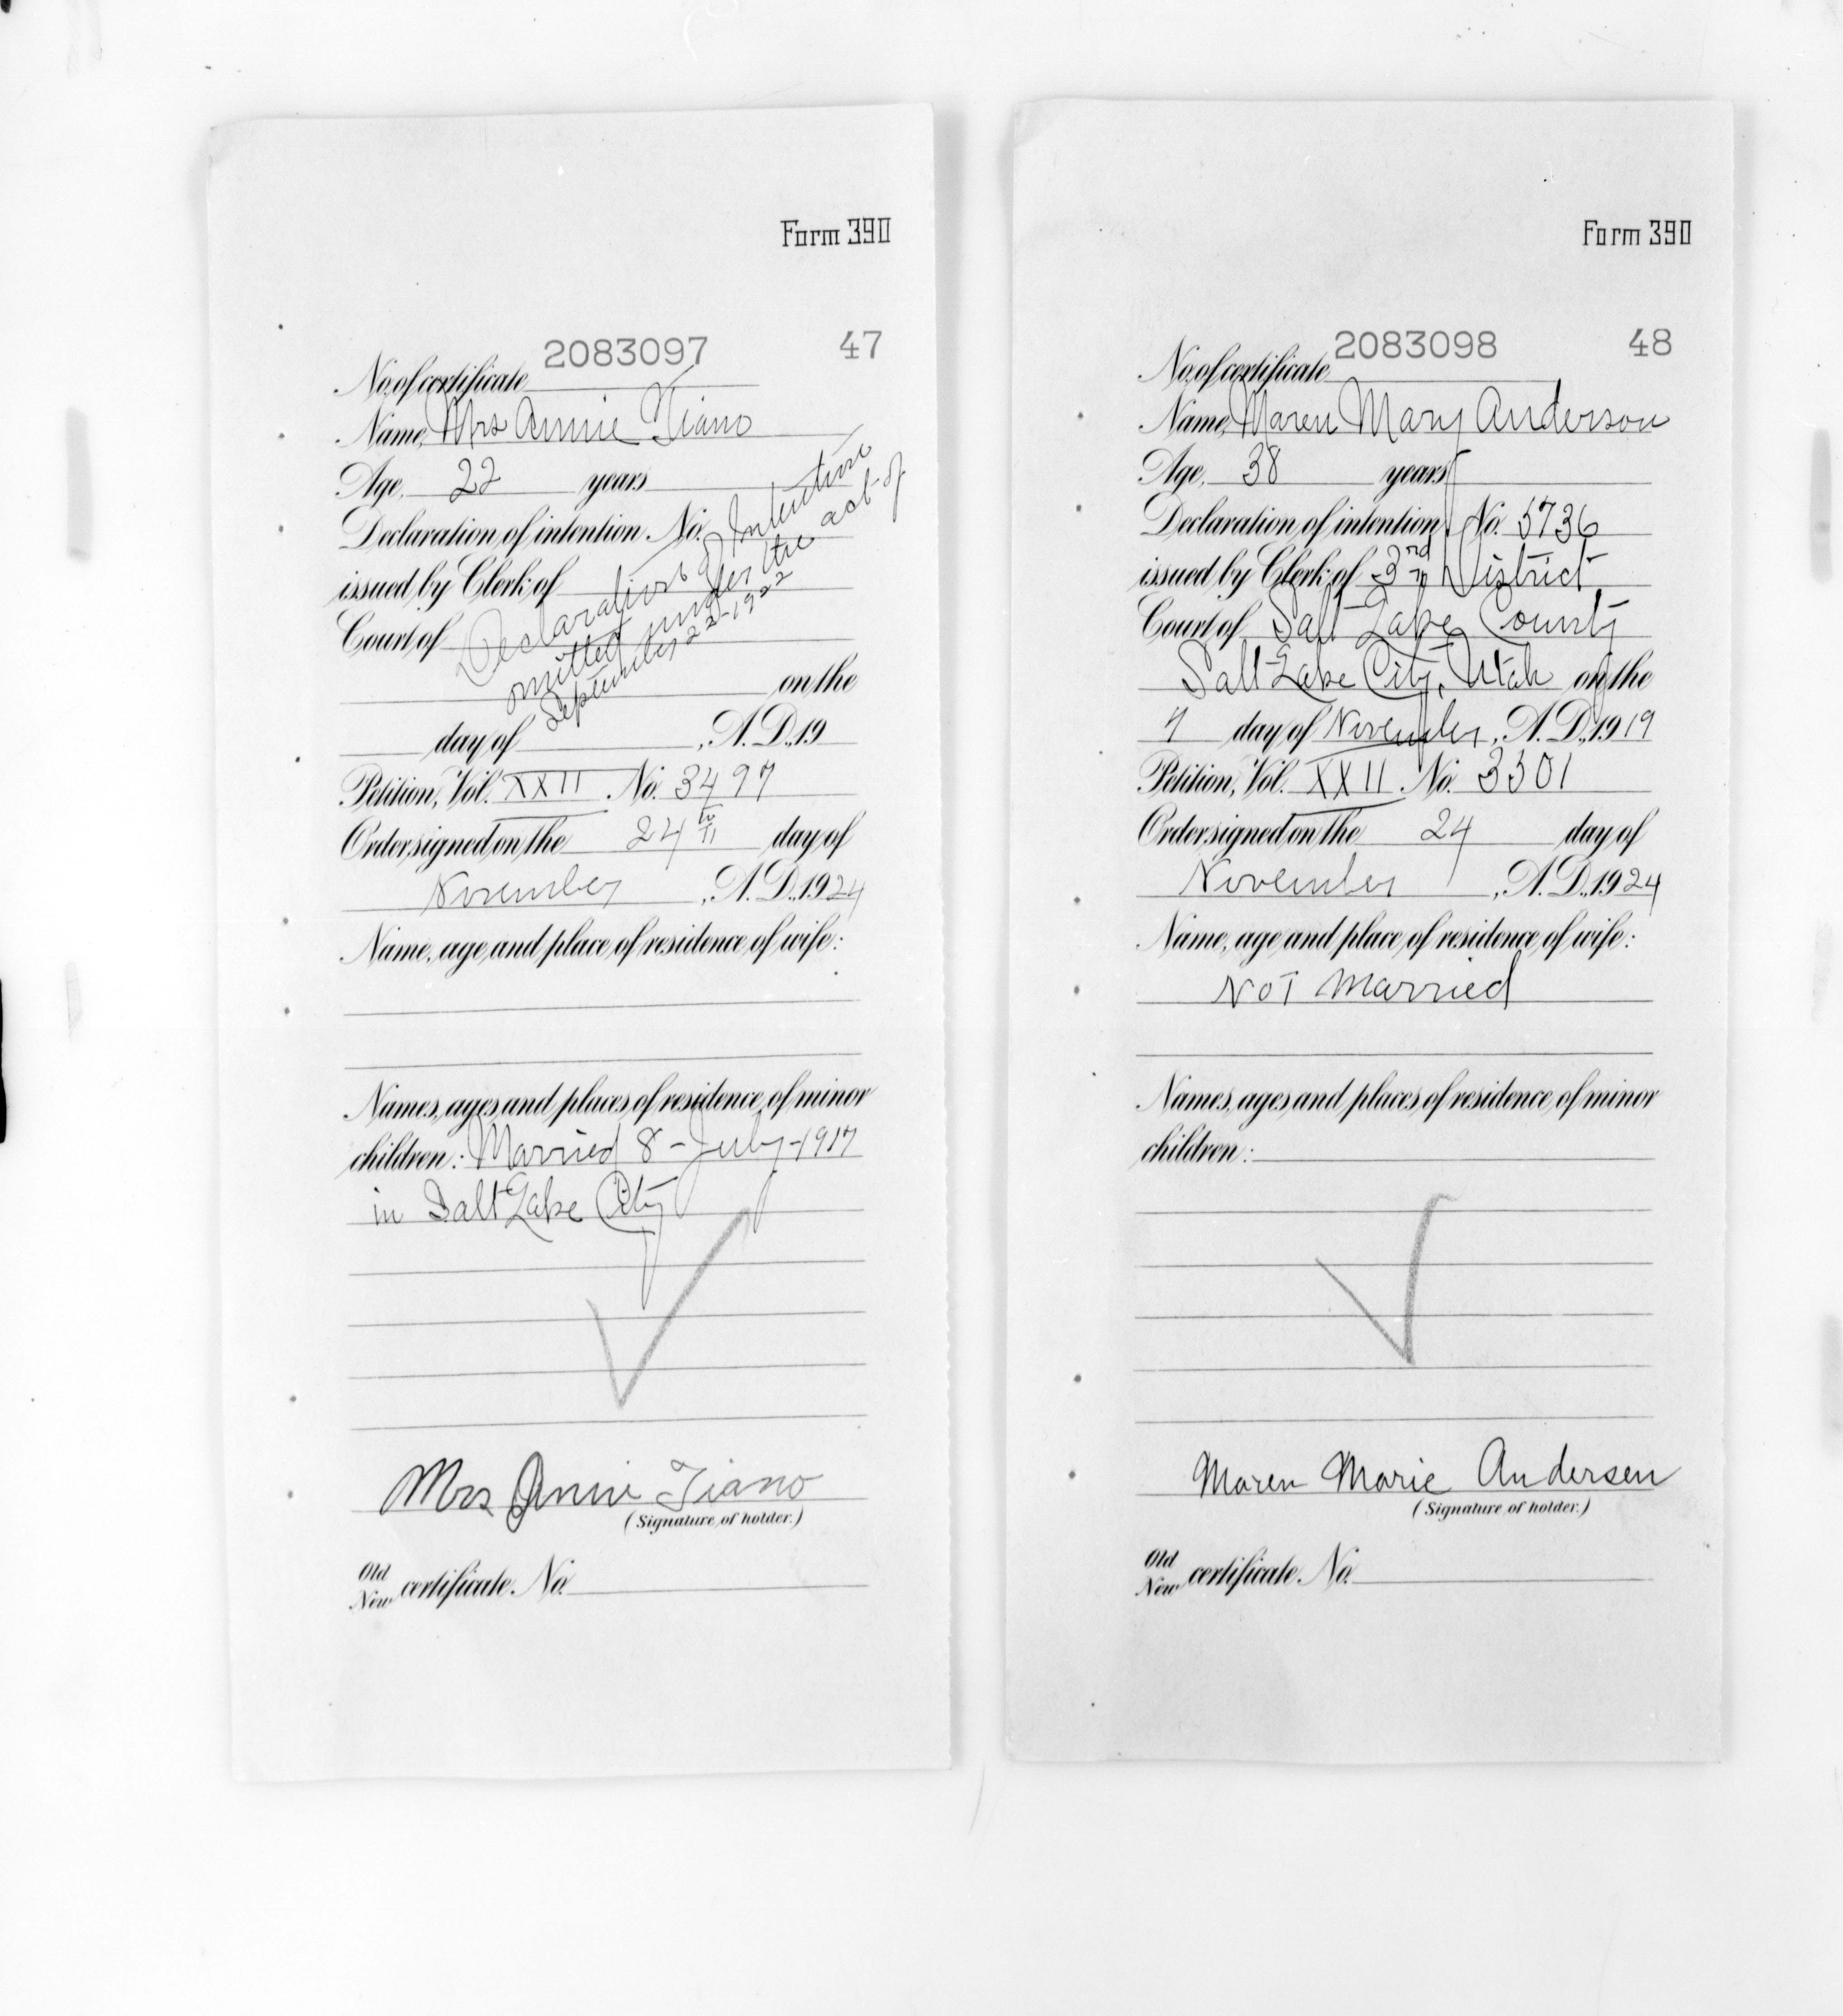 Form 390
2083097 47
No. of certificate
Name, Mrs Annie Tiano
Age, 22 years
Declaration of intention No.
issued by Clerk of
Court of
Declaration of Intention
omitted under the act of
September 22-1922
on the
day of , A. D., 19
Petition, Vol. XXII No. 3497
Order signed on the 24th day of
November , A. D., 1924
Name, age and place of residence of wife:
Names, ages and places of residence of minor
children: Married 8-July-1917
in Salt Lake City
Mrs Annie Tiano
(Signature of holder.)
Old
New certificate No.
Form 390
2083098 48
No. of certificate
Name, Maren Mary Anderson
Age, 38 years
Declaration of intention No. 5736
issued by Clerk of 3rd District
Court of Salt Lake County
Salt Lake City, Utah on the
7 day of November, A. D., 1919
Petition, Vol. XXII No. 3501
Order signed on the 24 day of
November , A. D., 1924
Name, age and place of residence of wife:
NOT Married
Names, ages and places of residence of minor
children:
Maren Marie Andersen
(Signature of holder.)
Old
New certificate No.